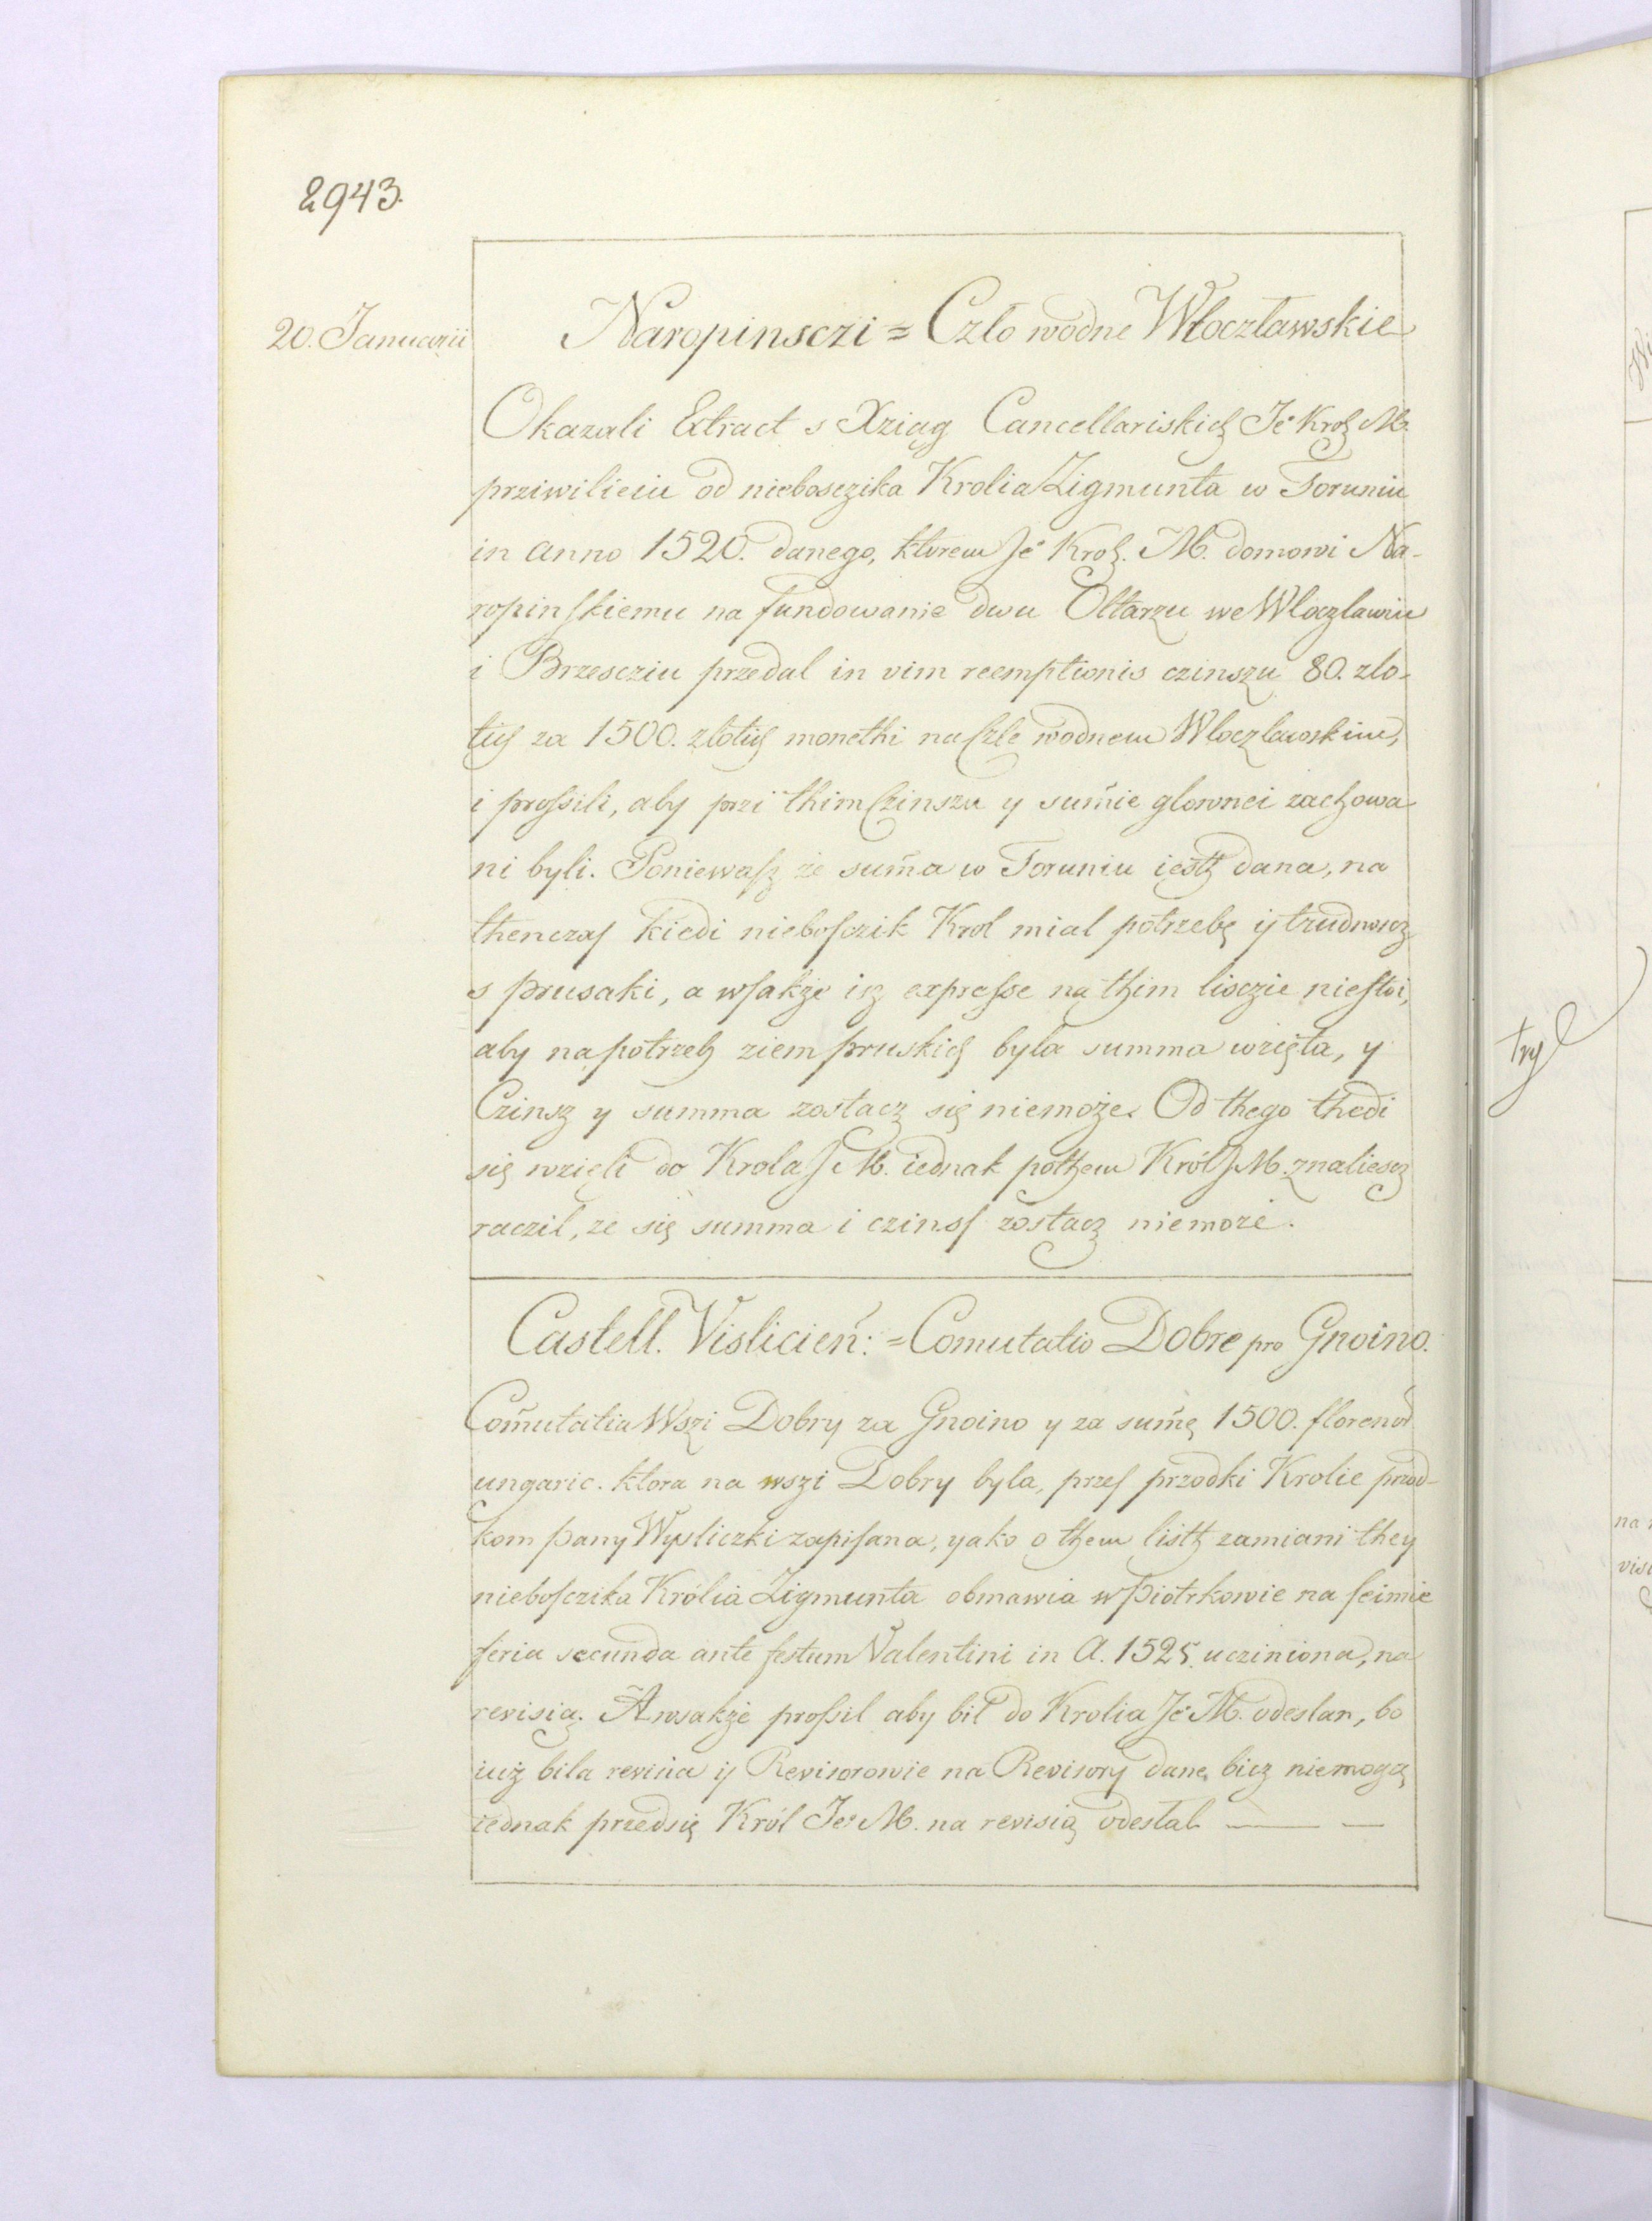 2943.
20. Januarii
Naropinsczi = Czło wodne Włoczławskie
Okazali Extract s Xziąg Cancellariskich Je° Kroh M.
prziwilieiu od niebosczika Krolia Zigmunta w Toruniu
in anno 1520. danego, ktorem Je° Kroh. M. domowi Na-
ropinskiemu na fundowanie dwu Ołtarzu we Wloczlawiu
i Brzescziu przedal in vim reemptionis czinszu 80. zlo-
tich za 1500. zlotich monethi na Czle wodnem Wloczlawskim,
i prossili, aby przi thim Czinszu y sum̄ie glownei zachowa-
ni byli. Poniewasz że sum̄a w Toruniu iesth dana, na
thenczas kiedi nieboszczik Krol mial potrzebę ij trudnoscz
s prusaki, a wsakże isz expresse na thim lisczie niestoi,
aby na potrzeb ziem pruskich byla summa wzięta, y
Czinsz y summa zostacz się niemoże. Od thego thedi
się wzięli do Krola J M. iednak pothem Król J M. znaliescz
raczil, ze się summa i czinss zostacz niemoże.
Castell. Vislicień: = Comutatio Dobre pro Gnoino.
Com̄utatia Wszi Dobry za Gnoino y za sum̄ę 1500. florenoł
ungaric. ktora na wszi Dobry byla, przes przodki Krolie przod-
kom pany Wysliczki zapisana, yako o them listh zamiani they
niebosczika Królia Zigmunta obmawia w Piotrkowie na seimie
feria secunda ante festum Valentini in A. 1525. ucziniona, na
revisią. A wsakże prossil aby bił do Krolia Je° M. odeslan, bo
iuż bila revisia ij Revisorowie na Revisory dane bicz niemogą
iednak przedsię Król Je° M. na revisią odesłał — —
try
na